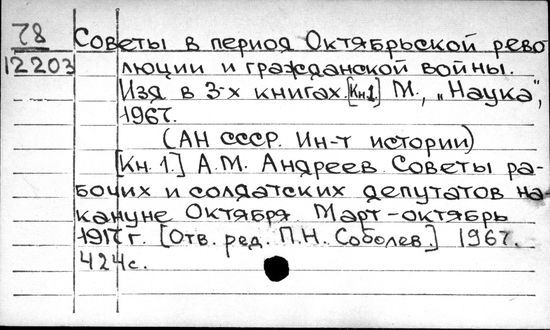 78
12203
Советы в период Октябрьской рево
люции и гражданской войны.
Изд в 3-х книгах. [Кн 1.] М., „Наука",
1967.
(АН СССР. Ин-т истории)
[Кн. 1.] А.М. Андреев. Советы ра-
бочих и солдатских депутатов на-
кануне Октября. Март-октябрь
1917 г. [Отв. ред. П.Н. Соболев.] 1967.
424 с.